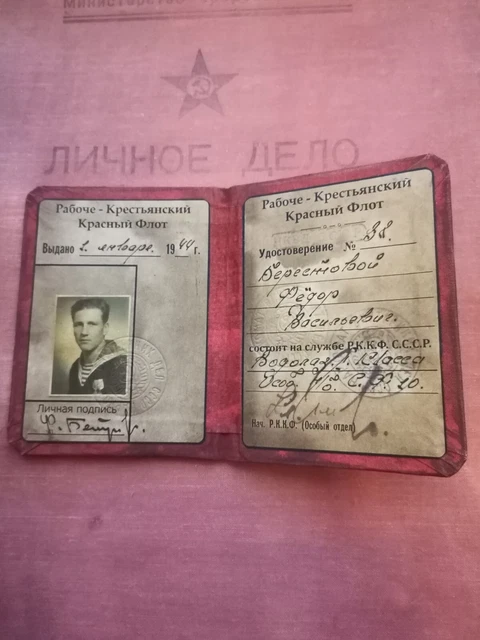 Министерство
ЛИЧНОЕ ДЕЛО
Рабоче - Крестьянский
Красный Флот
Выдано 2 января. 1944 г.
Личная подпись
Рабоче - Крестьянский
Красный Флот
Удостоверение № 38.
Берестовой
Фёдор
Васильевич.
состоит на службе Р.К.К.Ф. С.С.С.Р.
Водолаз 1. класса
Нач. Р.К.К.Ф. (Особый отдел)